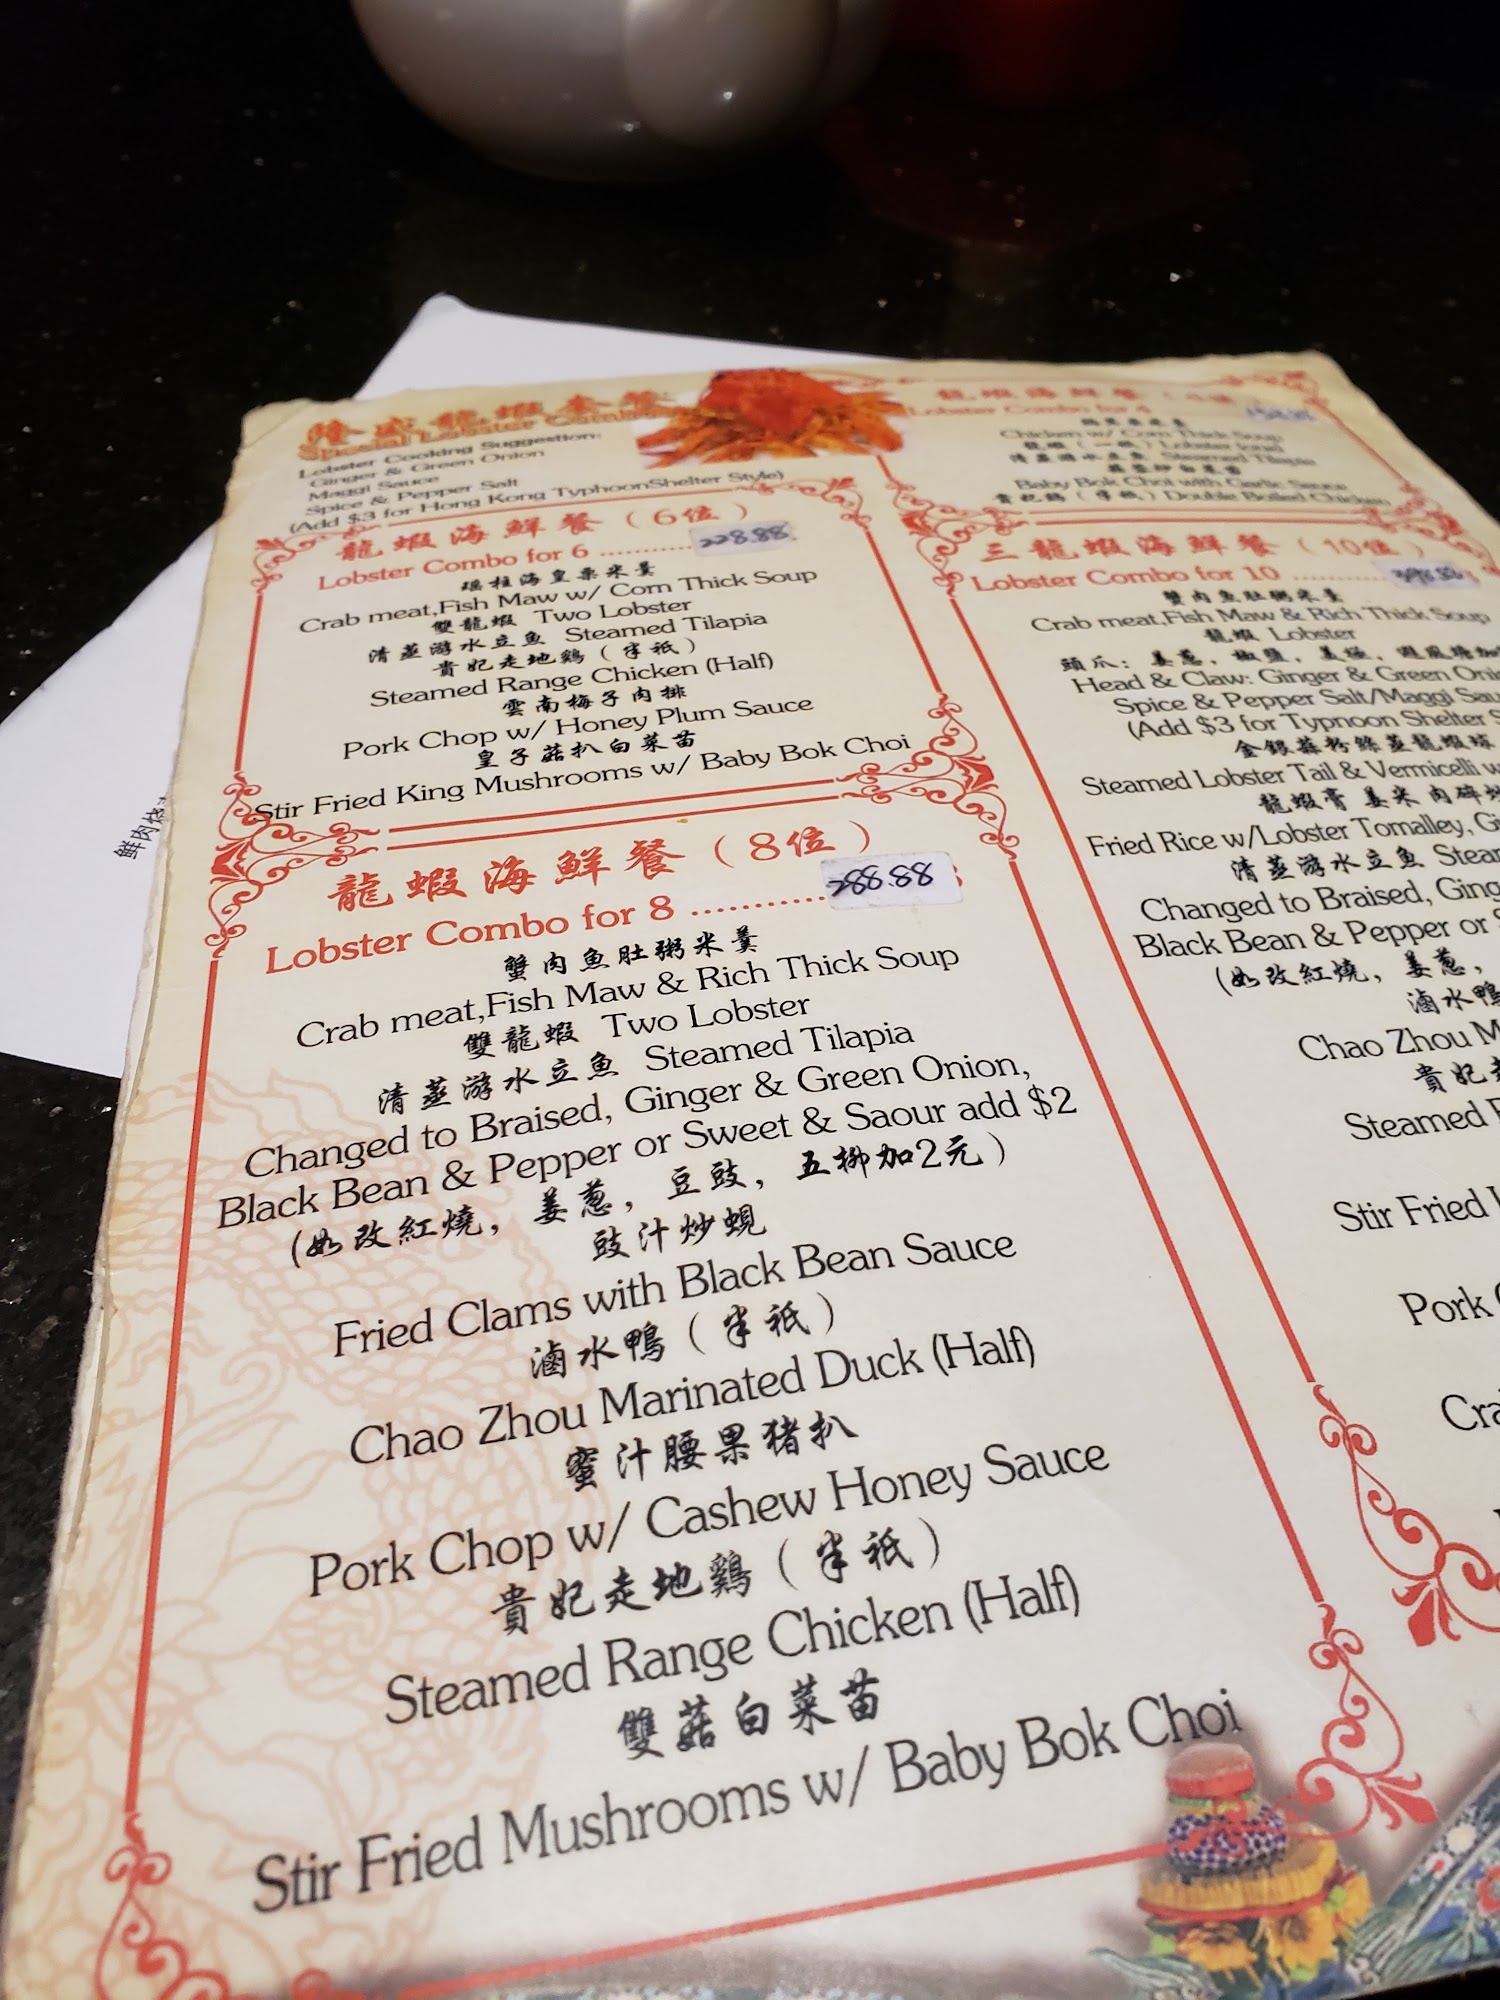 隆盛龍蝦套餐
Special Lobster Combo
Lobster Cooking Suggestion:
Ginger & Green Onion
Maggi Sauce
Spice & Pepper Salt
(Add $3 for Hong Kong TyphoonShelter Style)
龍蝦海鮮餐（6位）
Lobster Combo for 6 ............ 228.88
瑤柱海皇粟米羹
Crab meat,Fish Maw w/ Corn Thick Soup
雙龍蝦 Two Lobster
清蒸游水立魚 Steamed Tilapia
貴妃走地鷄（半祇）
Steamed Range Chicken (Half)
雲南梅子肉排
Pork Chop w/ Honey Plum Sauce
皇子菇扒白菜苗
Stir Fried King Mushrooms w/ Baby Bok Choi
龍蝦海鮮餐（8位）
Lobster Combo for 8 ............ 288.88
蟹肉魚肚粥米羹
Crab meat,Fish Maw & Rich Thick Soup
雙龍蝦 Two Lobster
清蒸游水立魚 Steamed Tilapia
Changed to Braised, Ginger & Green Onion,
Black Bean & Pepper or Sweet & Saour add $2
(如改紅燒，姜蔥，豆豉，五柳加2元）
豉汁炒蜆
Fried Clams with Black Bean Sauce
滷水鴨（半祇）
Chao Zhou Marinated Duck (Half)
蜜汁腰果猪扒
Pork Chop w/ Cashew Honey Sauce
貴妃走地鷄（半祇）
Steamed Range Chicken (Half)
雙菇白菜苗
Stir Fried Mushrooms w/ Baby Bok Choi
龍蝦海鮮餐（4位
Lobster Combo for 4
Chicken w/ Corn Thick Soup
龍蝦（一祇）Lobster (one)
清蒸游水立魚 Steamed Tilapia
Baby Bok Choi with Garlic Sauce
貴妃鷄（半祇）Double Boiled Chicken
三龍蝦海鮮餐（10位）
Lobster Combo for 10 ............
蟹肉魚肚粥米羹
Crab meat,Fish Maw & Rich Thick Soup
龍蝦 Lobster
頭爪：姜蔥，椒鹽，美極，避風塘加
Head & Claw: Ginger & Green Oni
Spice & Pepper Salt/Maggi Sau
(Add $3 for Typnoon Shelter S
金銀蒜粉絲蒸龍蝦球
Steamed Lobster Tail & Vermicelli w
龍蝦膏姜米肉碎
Fried Rice w/Lobster Tomalley, Gi
清蒸游水立魚 Stea
Changed to Braised, Ging
Black Bean & Pepper or S
(如改紅燒，姜蔥，
滷水鴨
Chao Zhou M
貴妃
Steamed
Stir Fried
Pork
Cra
鮮肉烧